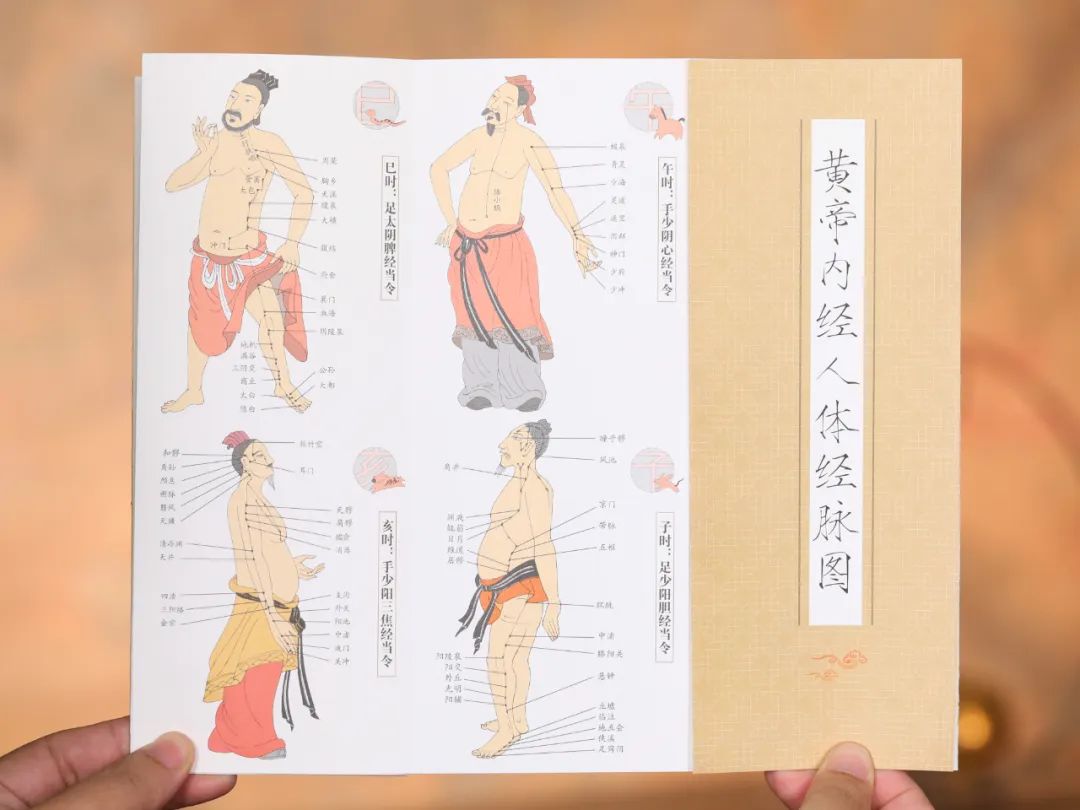 黄帝内经人体经脉图
巳
巳时：足太阴脾经当令
周荣
胸乡
天溪
食窦
大包
腹哀
大横
冲门
府舍
箕门
血海
阴陵泉
地机
漏谷
三阴交
商丘
太白
隐白
公孙
大都
午
午时：手少阴心经当令
极泉
青灵
少海
灵道
通里
阴郄
神门
少府
少冲
络小肠
亥
亥时：手少阳三焦经当令
丝竹空
耳门
和髎
角孙
颅息
瘈脉
翳风
天牖
天髎
臑会
消泺
清冷渊
天井
四渎
三阳络
会宗
支沟
外关
阳池
中渚
液门
关冲
子
子时：足少阳胆经当令
瞳子髎
风池
肩井
渊液
辄筋
日月
维道
居髎
京门
带脉
五枢
环跳
中渎
膝阳关
阳陵泉
阳交
外丘
光明
阳辅
悬钟
丘墟
临泣
地五会
侠溪
足窍阴